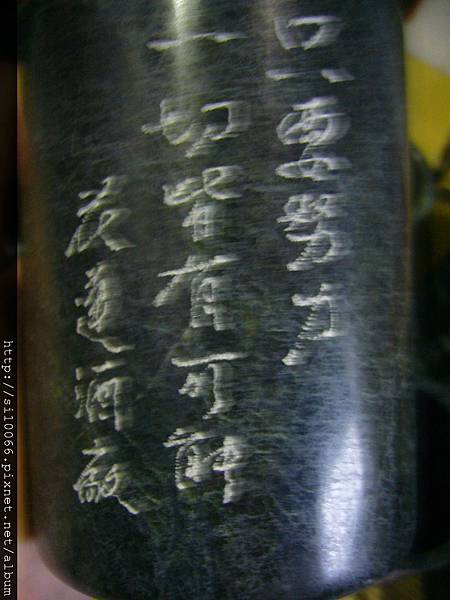 只要努力
一切皆有可能
花蓮酒廠
http://si10066.pixnet.net/album